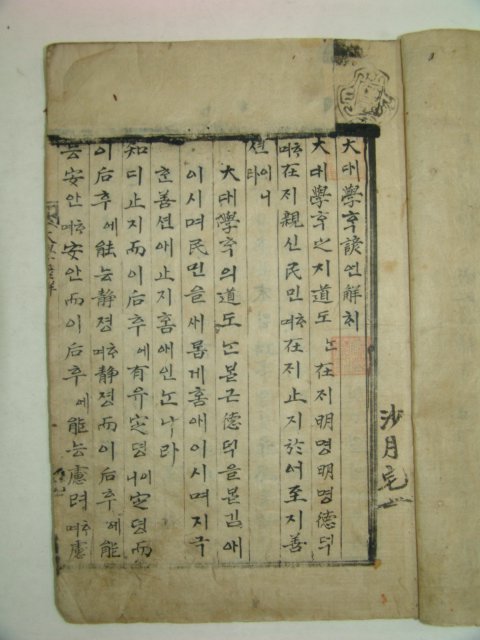 大대學학諺언解ᄒᆡ
大대學학之지道도ᄂᆞᆫ在ᄌᆡ明명明명德덕
ᄒᆞ며在ᄌᆡ親신民민ᄒᆞ며在ᄌᆡ止지於어至지善
션이니라
大대學학의道도ᄂᆞᆫ ᄇᆞᆯ근德덕을ᄇᆞᆯ김애
이시며民민을새롭게홈애이시며지극
ᄒᆞᆫ善션애止지홈애인ᄂᆞ니라
知디止지而이后후에有유定뎡이니定뎡而
이后후에能능静졍ᄒᆞ며静졍而이后후에能
능安안ᄒᆞ며安안而이后후에能능慮려ᄒᆞ며慮
沙月宅